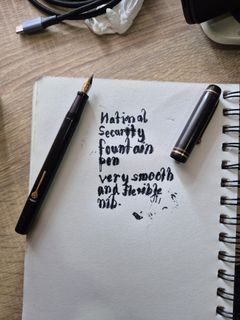 National
Security
fountain
pen
very smooth
and flexible
nib.